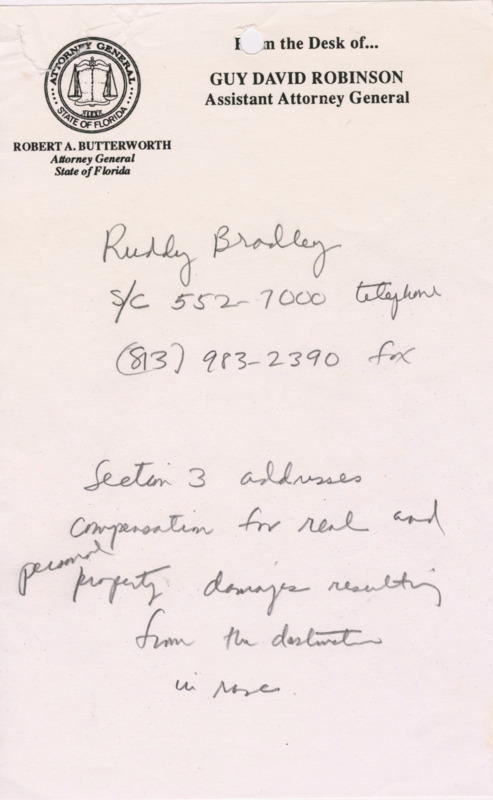 ATTORNEY GENERAL
STATE OF FLORIDA
ROBERT A. BUTTERWORTH
Attorney General
State of Florida
m the Desk of...
GUY DAVID ROBINSON
Assistant Attorney General
Ruddy Bradley
S/C 552-7000 telephone
(813) 983-2390 fax
Section 3 addresses
compensation for real and
personal
property damages resulting
from the destruction
in